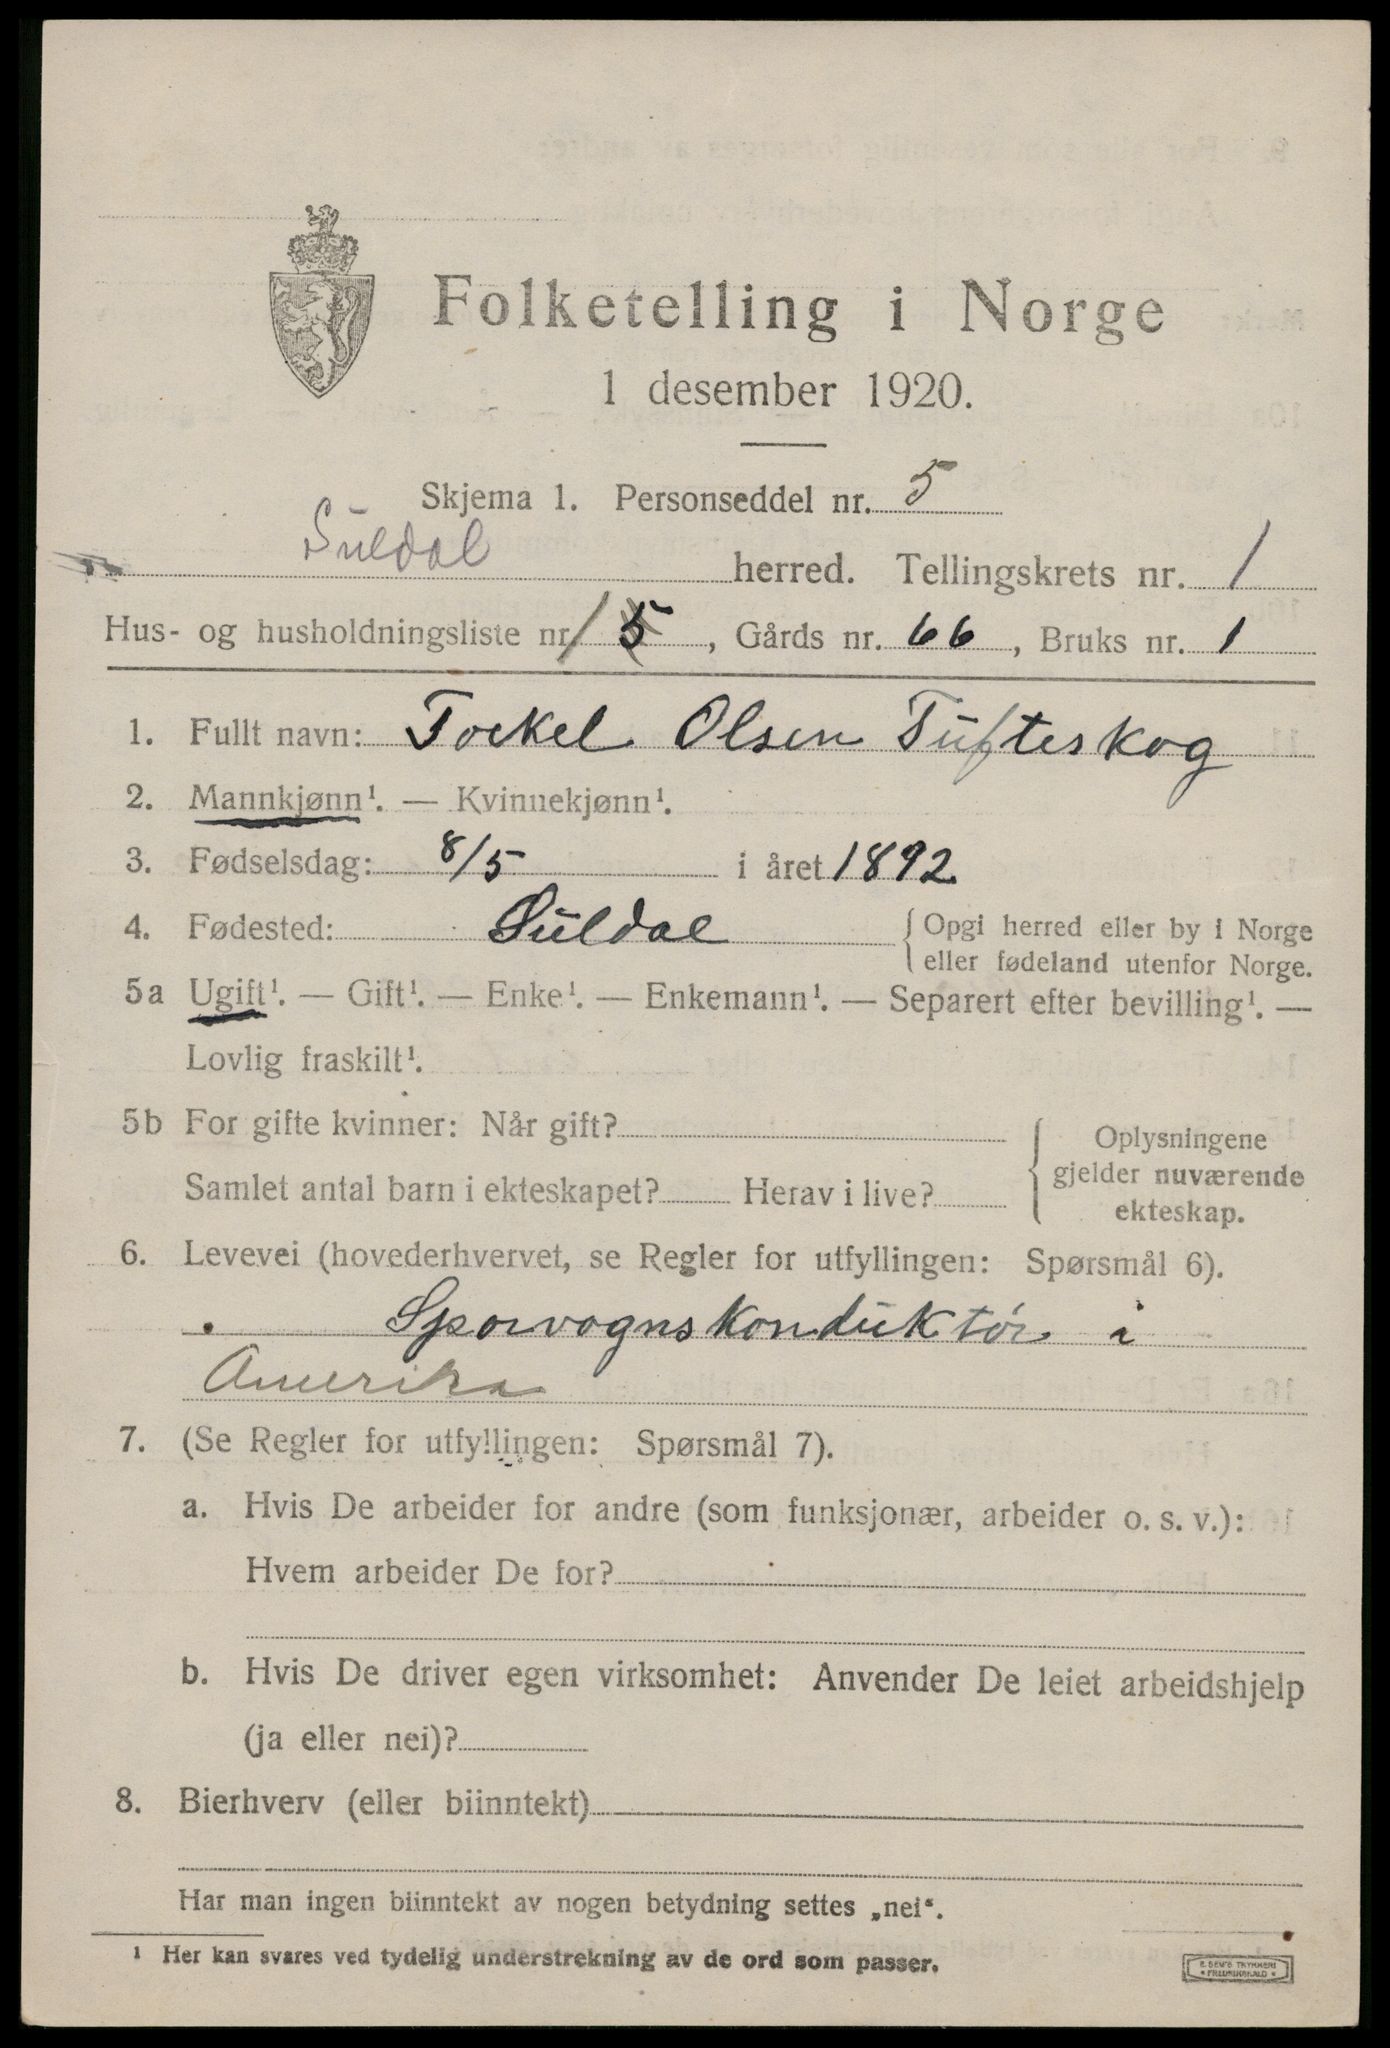 Folketelling i Norge
1 desember 1920.
Skjema 1. Personseddel nr. 5
Suldal herred. Tellingskrets nr. 1
Hus- og husholdningsliste nr. 1 5, Gårds nr. 66, Bruks nr. 1
1. Fullt navn: Torkel Olsen Tufteskog
2. Mannkjønn¹. — Kvinnekjønn¹.
3. Fødselsdag: 8/5 i året 1892
4. Fødested: Suldal { Opgi herred eller by i Norge
eller fødeland utenfor Norge.
5a Ugift¹. — Gift¹. — Enke¹. — Enkemann¹. — Separert efter bevilling¹. —
Lovlig fraskilt¹.
5b For gifte kvinner: Når gift?
Samlet antal barn i ekteskapet? Herav i live?
{ Oplysningene
gjelder nuværende
ekteskap.
6. Levevei (hovederhvervet, se Regler for utfyllingen: Spørsmål 6).
Sporvognskonduktør i
Amerika
7. (Se Regler for utfyllingen: Spørsmål 7).
a. Hvis De arbeider for andre (som funksjonær, arbeider o. s. v.):
Hvem arbeider De for?
b. Hvis De driver egen virksomhet: Anvender De leiet arbeidshjelp
(ja eller nei)?
8. Bierhverv (eller biinntekt)
Har man ingen biinntekt av nogen betydning settes „nei“.
¹ Her kan svares ved tydelig understrekning av de ord som passer.
E. SEM'S TRYKKERI
FREDRIKSHALD